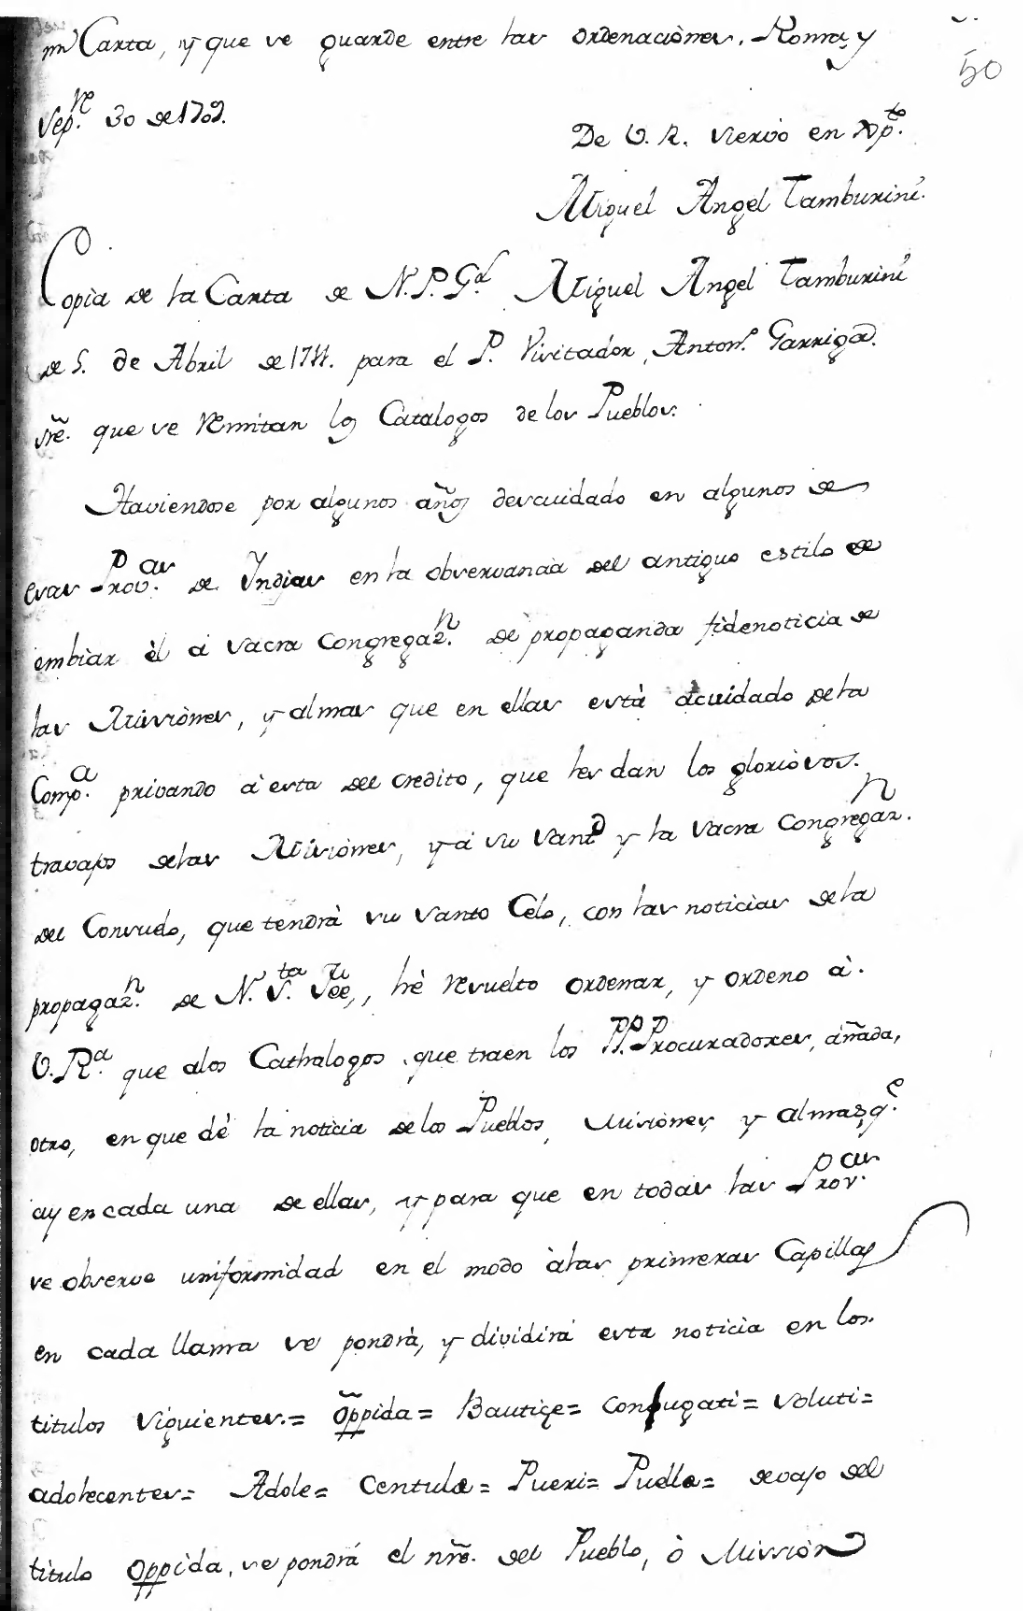 50
mi Carta, y que se guarde entre las ordenaciònes. Roma, y
Sep.re 30 de 1709.
De V. R. siervo en Xp.to
Miguel Angel Tamburini.
Copia de la Carta de N. P. G.al Miguel Angel Tamburini
de 5. de Abril de 1711. para el P. Visitador, Anton.o Garriga.
sre. que se remitan los Catalogos de los Pueblos.
Haviendose por algunos años descuidado en algunos de
esas Prov.as de Indias en la observancia del antiguo estilo de
embiar èl a sacra Congregaz.n de propaganda fide noticia de
las Missiònes, y almas que en ellas està acuidado de la
Comp.a privando à esta del credito, que les dan los gloriòsos.
travajos de las Missiònes, y à su Sant.d y la sacra Congregaz.n
del Consuelo, que tendrà su santo Celo, con las noticias de la
propagaz.n de N. S.ta Fee, hè resuelto ordenar, y ordeno à.
V. R.a que a los Cathalogos que traen los PP. Procuradores, añada,
otro, en que dè la noticia de los Pueblos, Missiònes, y almas, q.e
ay en cada una de ellas, y para que en todas las Prov.as
se observe uniformidad en el modo à las primeras Capillas
en cada llana se pondrà, y dividirà esta noticia en los.
titulos siguientes.= oppida= Bautiçe= Conjugati= Soluti=
adolecentes= Adole= centulæ= Pueri= Puellæ= devajo del
titulo Oppida, se pondrá el nre. del Pueblo, ò Missiòn